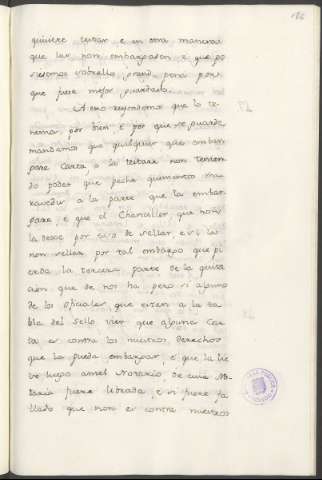 186
quisiere testar, e en otra manera
que las non embargasen, e que po
siesemos sobrello pena, por
que fuese mejor guardado.
A esto respondemos que lo te-
nemos por bien, e por que se guarde
mandamos que qualquier que embar
gare carta, o la testare non tenien
do poder que peche quinientos ma
ravedis a la parte que la embar
gare, e que el Chanciller, que non
la dexe por eso de sellar, e si la
non sellar por tal embargo que pi
erda la tercera parte de la quita
cion que de nos ha, pero si alguno
de los oficiales que esten a la ta
bla del sello vier que alguna car
ta es contra los nuestros derechos
que la pueda embargar, e que la lie
ve luego antel Notario, de cuia No-
taria fuere librada, e si fuere fa
llado que non es contra nuestros